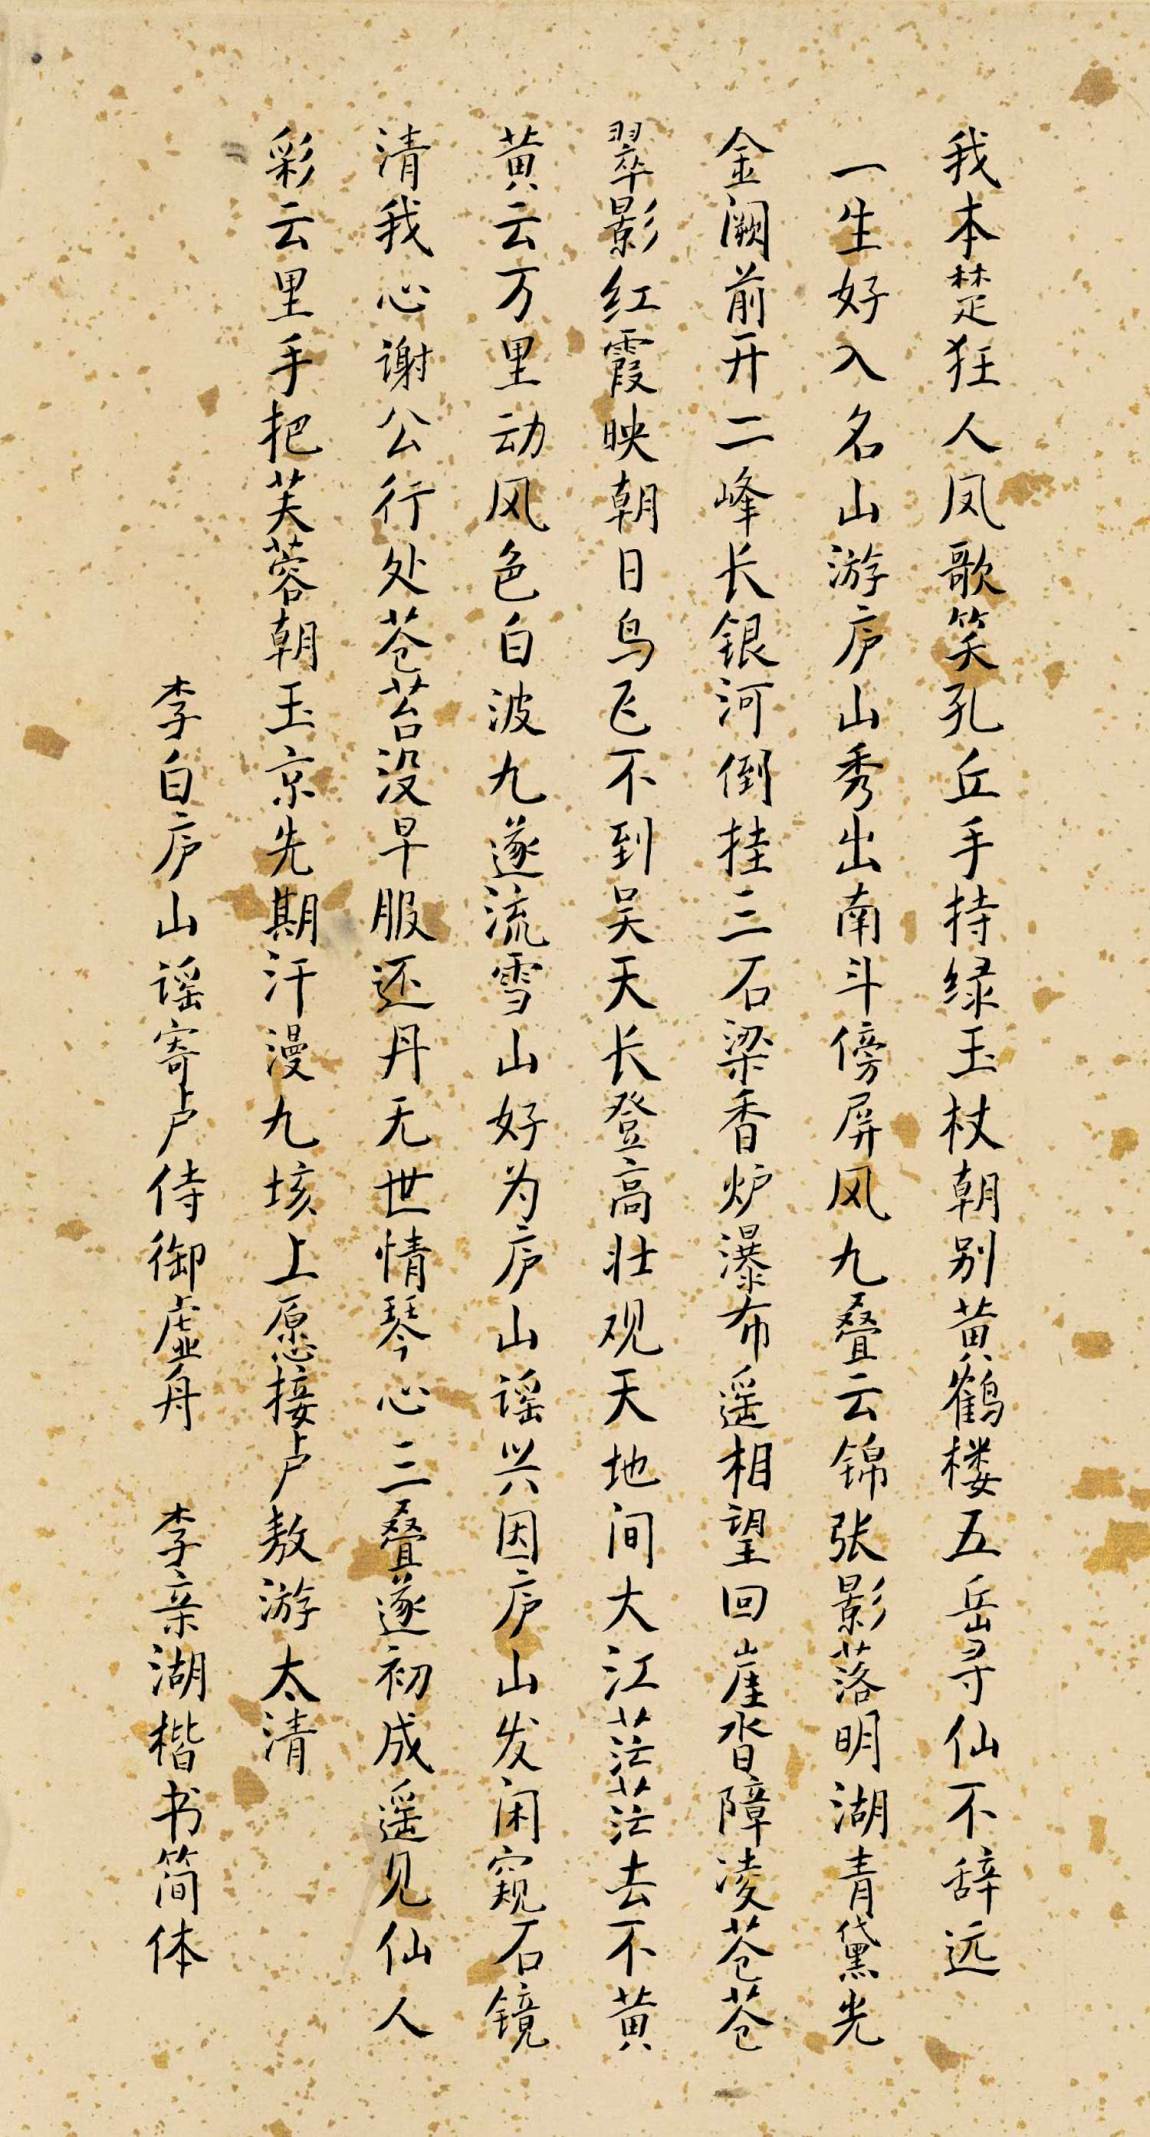 我本楚狂人凤歌笑孔丘手持绿玉杖朝别黄鹤楼五岳寻仙不辞远
一生好入名山游庐山秀出南斗傍屏风九叠云锦张影落明湖青黛光
金阙前开二峰长银河倒挂三石梁香炉瀑布遥相望回崖沓障凌苍苍
翠影红霞映朝日鸟飞不到吴天长登高壮观天地间大江茫茫去不黄
黄云万里动风色白波九遂流雪山好为庐山谣兴因庐山发闲窥石镜
清我心谢公行处苍苔没早服还丹无世情琴心三叠遂初成遥见仙人
彩云里手把芙蓉朝玉京先期汗漫九垓上愿接卢敖游太清
李白庐山谣寄卢侍御虚舟 李亲湖楷书简体